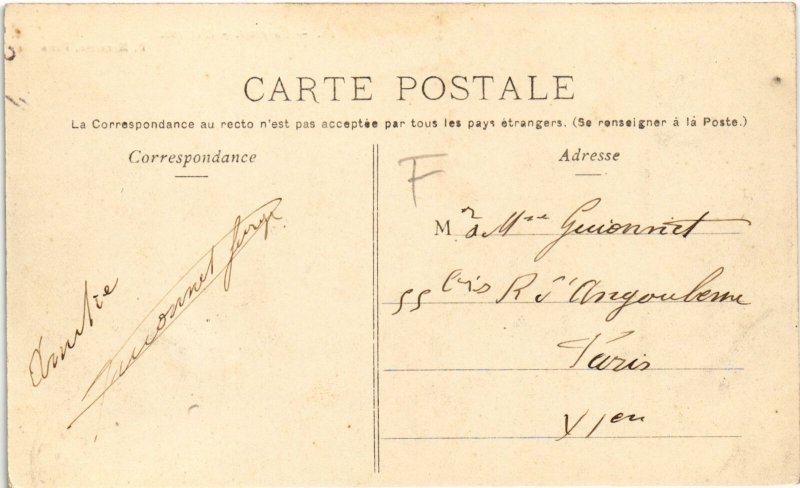 CARTE POSTALE
La Correspondance au recto n'est pas acceptée par tous les pays étrangers. (Se renseigner à là Poste.)
Correspondance
Adresse
F
Mr à Mme Guionnet
55 bis R d'Angouleme
Paris
XI en
Amitié
Guionnet